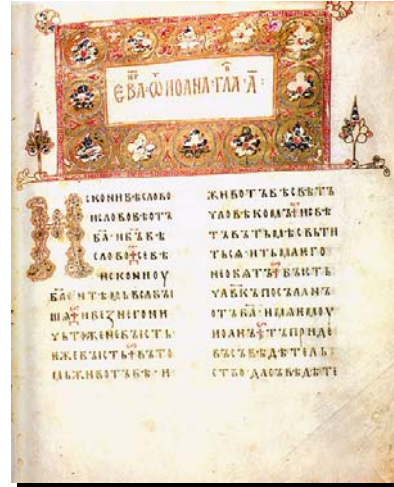 ЕВА ѾИОАНА·ГЛА·А҃:
ИСКОНИБѢСЛОВО
ИСЛОВОБѢОТЪ
БА҃·ИБ҃ЪБѢ
СЛОВО СЕБѢ
ИСКОНИОУ
БА҃ ИТѢМЬВСѦБЫ
ШѦ ИБЕЗНЕГОНИ
ЧЬТОЖЕНЕБЫСТЬ·
ИЖЕБЫСТЬ ВЪТО
МЬЖИВОТЪБѢ·И·
ЖИВОТЪБѢСВѢТЪ
ЧЛОВѢКОМЪ ИСВѢ
ТЪВЪТЬМѢСВЬТИ
ТЬСѦ·ИТЬМАѤГО
НЕОБѦТЪ БЫСТЬ
ЧЛ҃ВКЪПОСЪЛАНЪ
ОТЪБА҃·ИМѦѤМОУ
ИОАНЪ ТЪПРИДЕ
ВЪСЪВѢДѢТЕЛЬ
СТВО·ДАСЪВѢДѢТЕ